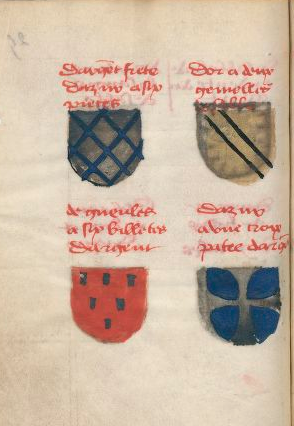 dargēt frete
dazur a six
pieces
dor a deux
gemelles
de sable
de gueules
a six billetes
dargent
dazur
a une croix
patee dargēt